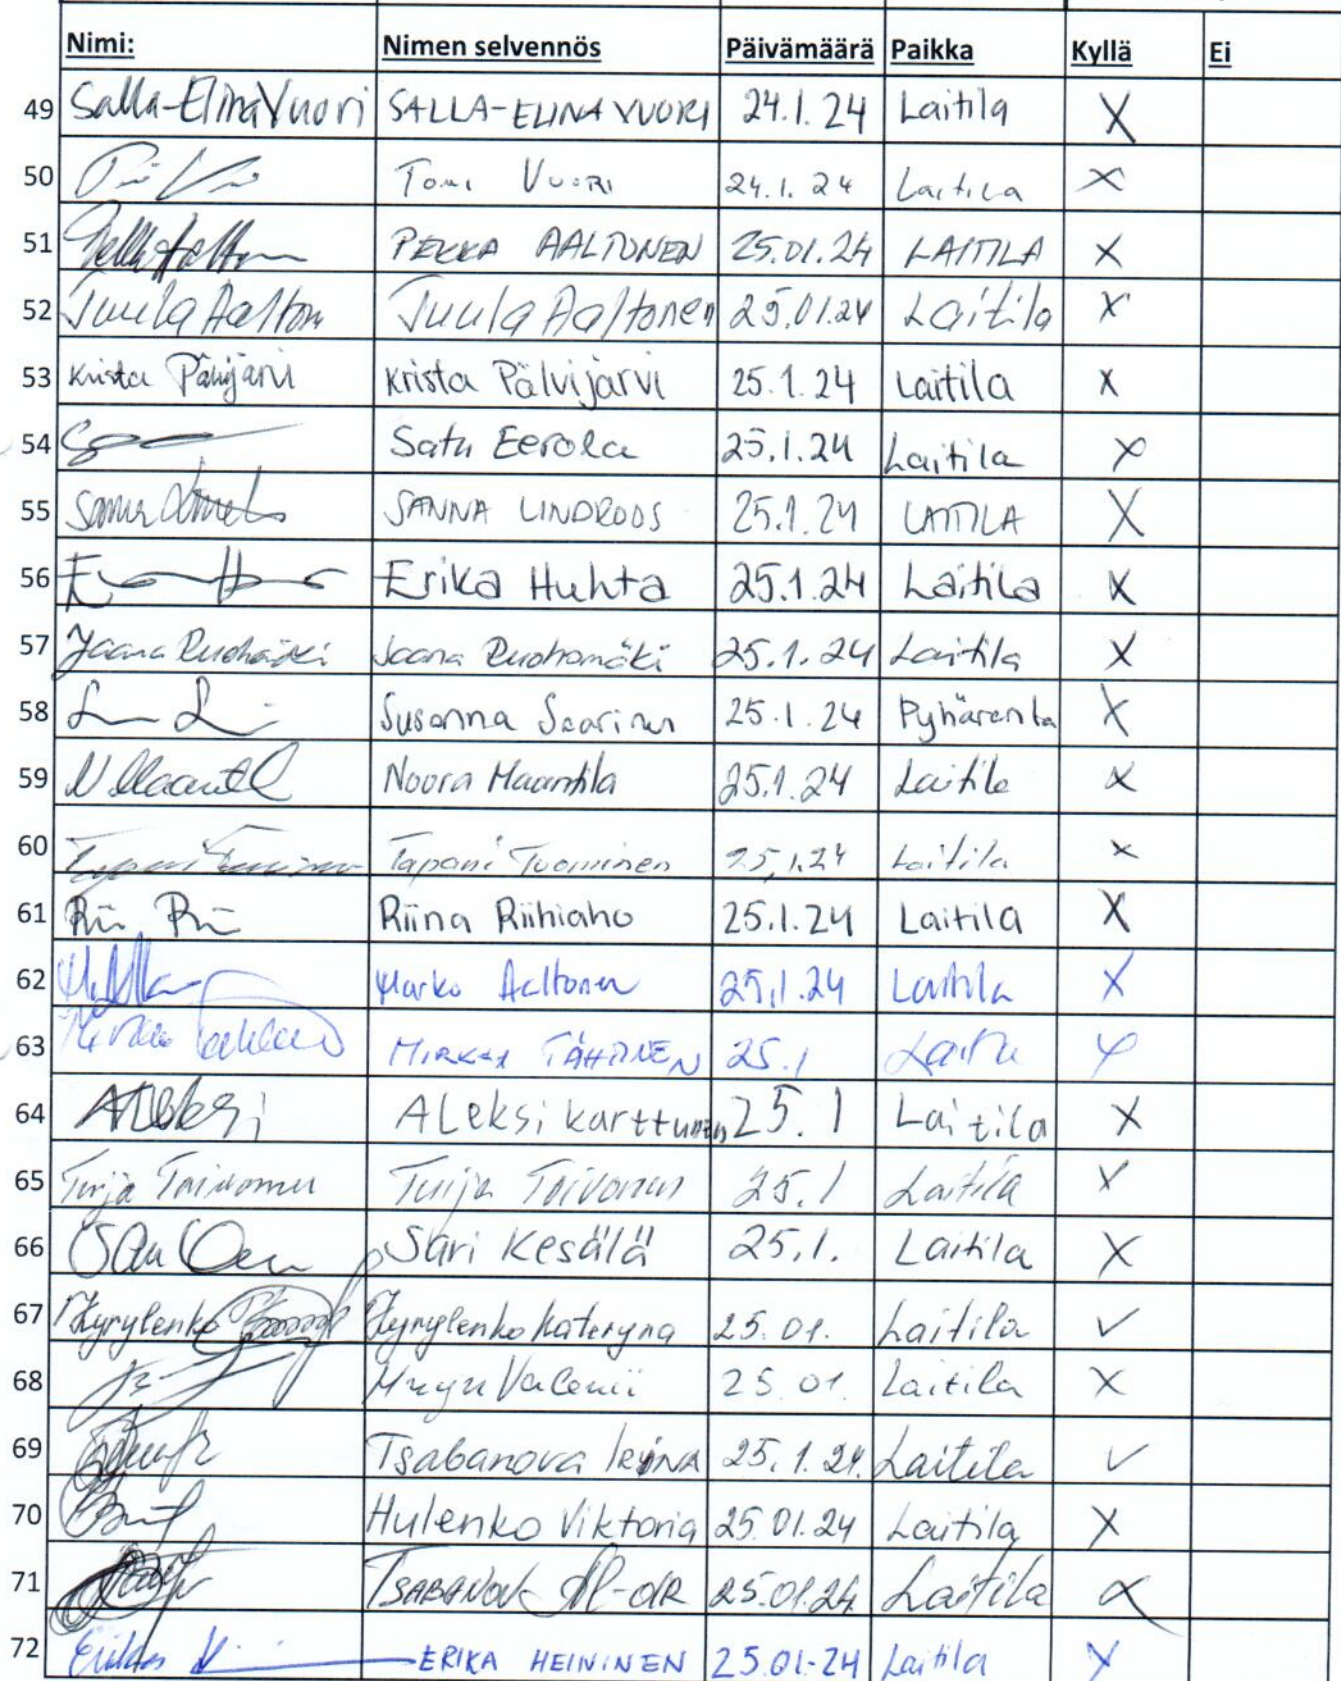 Nimi: Nimen selvennös Päivämäärä Paikka Kyllä Ei
49 Salla-Elina Vuori SALLA-ELINA VUORI 24.1.24 Laitila X
50 Tomi Vuori 24.1.24 Laitila X
51 PEKKA AALTONEN 25.01.24 LAITILA X
52 Tuula Aalton Tuula Aaltonen 25.01.24 Laitila X
53 Krista Pälvijärvi Krista Pälvijärvi 25.1.24 Laitila X
54 Satu Eerola 25.1.24 Laitila X
55 SANNA LINDROOS 25.1.24 LAITILA X
56 Erika Huhta 25.1.24 Laitila X
57 Jaana Ruohomäki Jaana Ruohomäki 25.1.24 Laitila X
58 Susanna Saarinen 25.1.24 Pyhäranta X
59 Noora Maantila 25.1.24 Laitila X
60 Tapani Tuominen Tapani Tuominen 25.1.24 Laitila X
61 Riina Riihiaho 25.1.24 Laitila X
62 Marko Aaltonen 25.1.24 Laitila X
63 MIRKKA TÄHTINEN 25.1 Laitila X
64 Aleksi ALeksi karttunen 25.1 Laitila X
65 Tuija Toivonen Tuija Toivonen 25.1 Laitila X
66 Sari Kesälä 25.1. Laitila X
67 Kyrylenko Kyrylenko Kateryna 25.01. Laitila ✓
68 25.01. Laitila X
69 Tsabanova 25.1.24. Laitila ✓
70 Hulenko Viktoria 25.01.24 Laitila X
71 TSABANOV 25.01.24. Laitila X
72 ERIKA HEININEN 25.01-24 Laitila X